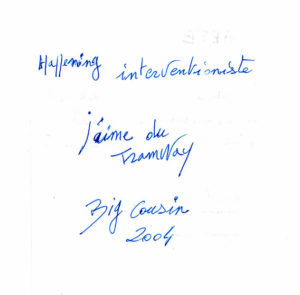 Happening interventioniste
j'aime du
Tramway
Big Cousin
2004